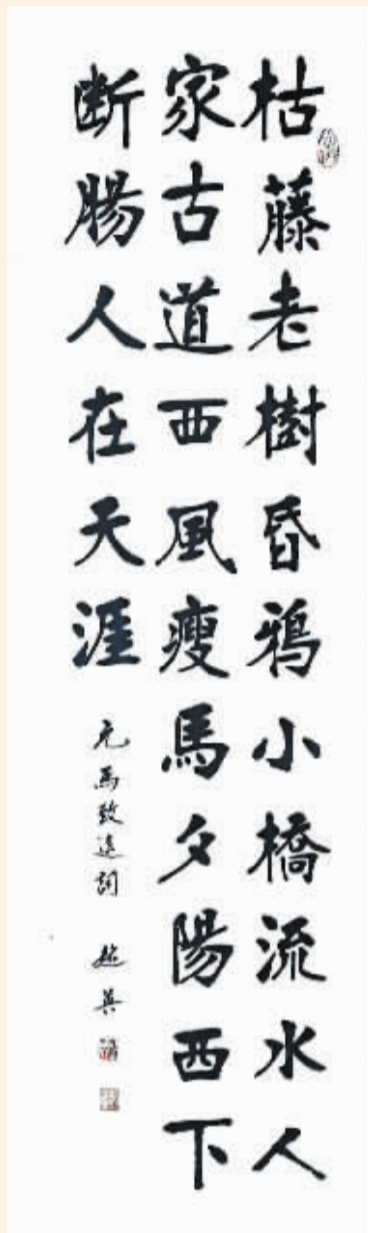 枯藤老樹昏鴉小橋流水人
家古道西風瘦馬夕陽西下
断腸人在天涯
元馬致遠詞 超英